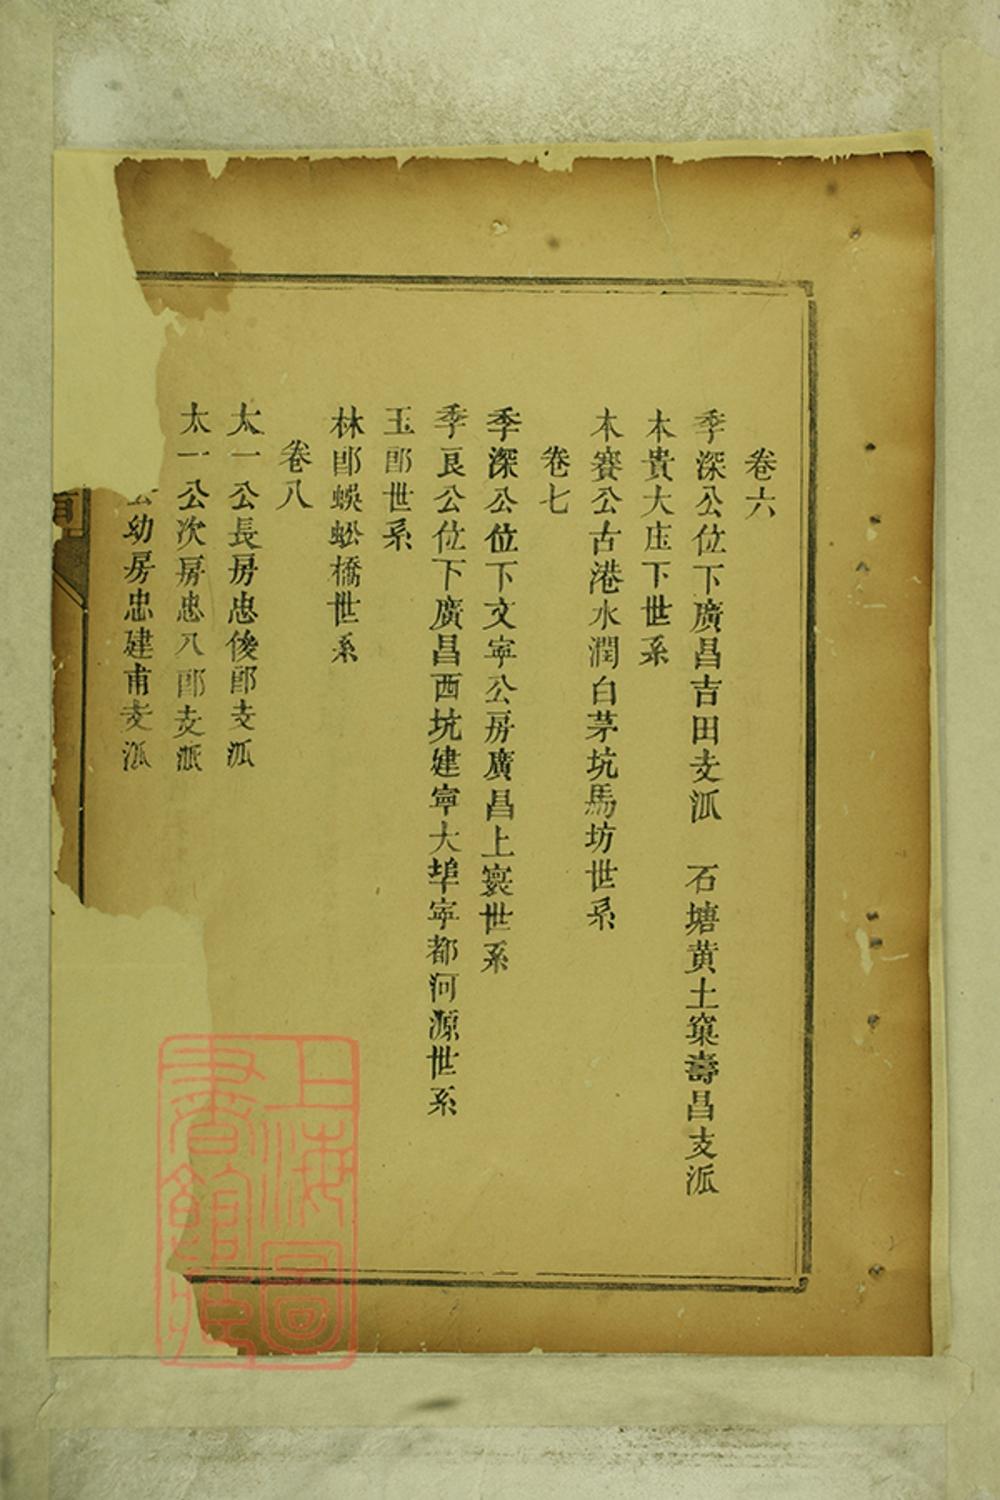 卷六
季深公位下廣昌吉田支派　石塘黄土窠壽昌支派
木貴大庄下世系
木賽公古港水潤白茅坑馬坊世系
卷七
季深公位下文寧公房廣昌上寰世系
季良公位下廣昌西坑建寧大埠寧都河源世系
玉郎世系
林郎蜈蚣橋世系
卷八
太一公長房忠俊郎支派
太一公次房忠八郎支派
公幼房忠建甫支派
上海圖書館藏